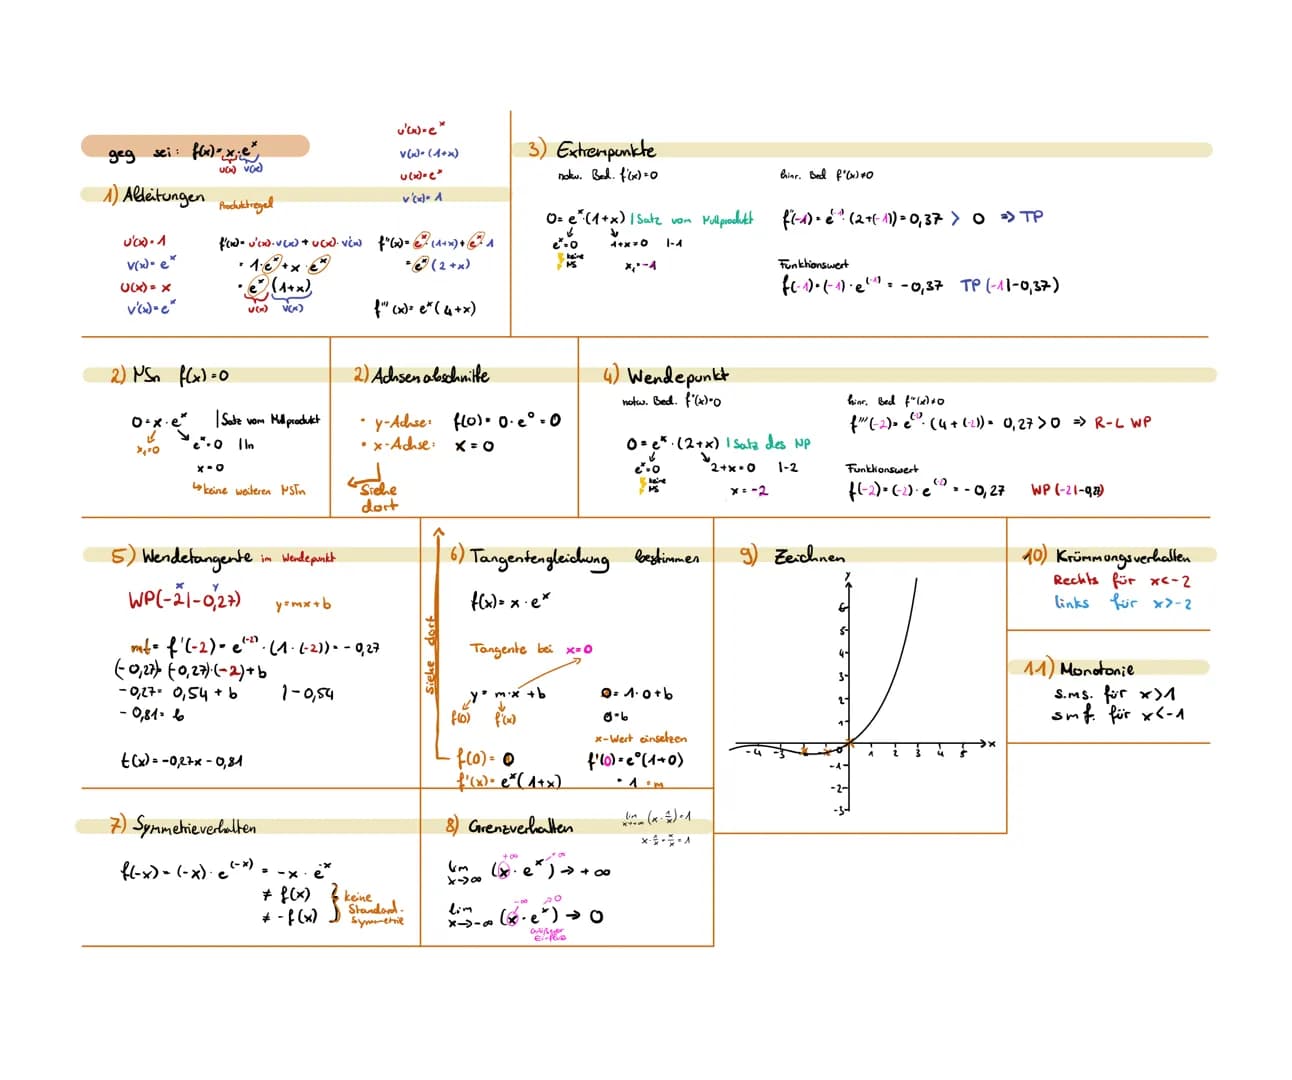 geg sei: f(x)= x·eˣ
u(x) v(x)
1) Ableitungen Produktregel
u'(x)=eˣ
v(x)=(1+x)
u(x)=eˣ
v'(x)=1
u'(x)=1
v(x)=eˣ
u(x)=x
v'(x)=eˣ
f'(x)=u'(x)·v(x)+u(x)·v'(x)
=1·eˣ+x·eˣ
=eˣ(1+x)
u(x) v(x)
f''(x)=eˣ·(1+x)+eˣ·1
=eˣ(2+x)
f'''(x)=eˣ(4+x)
3) Extrempunkte
notw. Bed. f'(x)=0
0=eˣ·(1+x) | Satz vom Nullprodukt
eˣ=0 1+x=0 |-1
keine NS
x₁=-1
hinr. Bed f''(x)≠0
f''(-1)=e⁽⁻¹⁾·(2+(-1))=0,37 > 0 ⇒ TP
Funktionswert
f(-1)=(-1)·e⁽⁻¹⁾=-0,37 TP(-1|-0,37)
2) NSn f(x)=0
0=x·eˣ | Satz vom Nullprodukt
x₁=0 eˣ=0 | ln
x=0
↳keine weiteren NSTn
2) Achsenabschnitte
• y-Achse: f(0)=0·e⁰=0
• x-Achse: x=0
siehe
dort
4) Wendepunkt
notw. Bed. f''(x)=0
0=eˣ·(2+x) | Satz des NP
eˣ=0 2+x=0 |-2
keine NS
x=-2
hinr. Bed f'''(x)≠0
f'''(-2)=e⁽⁻²⁾·(4+(-2))=0,27>0 ⇒ R-L WP
Funktionswert
f(-2)=(-2)·e⁽⁻²⁾=-0,27 WP(-2|-0,27)
5) Wendetangente im Wendepunkt
x y
WP(-2|-0,27) y=mx+b
mt= f'(-2)=e⁽⁻²⁾·(1·(-2))=-0,27
(-0,27)=(-0,27)·(-2)+b
-0,27=0,54+b |-0,54
-0,81=b
t(x)=-0,27x-0,81
siehe dort
6) Tangentengleichung bestimmen
f(x)=x·eˣ
Tangente bei x=0
y=m·x+b
f(0) f'(x)
f(0)=0
f'(x)=eˣ(1+x)
0=1·0+b
0=b
x-Wert einsetzen
f'(0)=e⁰(1+0)
=1=m
9) Zeichnen
y
6
5
4
3
2
1
-4 -3 0 1 2 3 4 5 x
-1
-2
-3
10) Krümmungsverhalten
Rechts für x<-2
links für x>-2
11) Monotonie
s.m.s. für x>1
smf. für x<-1
7) Symmetrieverhalten
f(-x)=(-x)·e⁽⁻ˣ⁾=-x·e⁻ˣ
≠ f(x)
≠ -f(x)
keine
Standard-
symmetrie
8) Grenzverhalten
lim x→∞ (x·1/x)=1
x·1/x=x/x=1
+∞ →∞
lim x→∞ (x·eˣ)→+∞
-∞ →0
lim x→-∞ (x·eˣ)→0
größerer
Einfluss